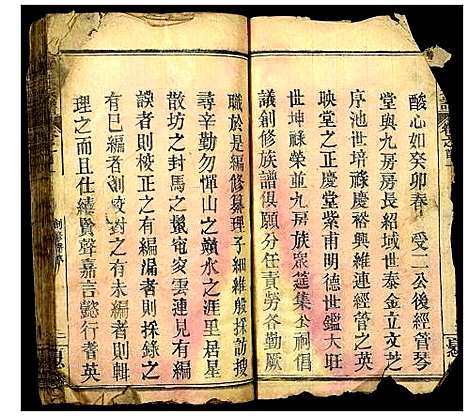 酸心如癸卯春 受二公後經管琴
堂與九房房長紹域世泰金立文芝
序池世培祿慶裕興維連經管之英
映堂之正慶堂紫甫明德世鑑大旺
世坤祿榮並九房族眾筵集公祠倡
議創修族譜俱願分任責勞各勤厥
職於是編修纂理子細維殷採訪搜
尋辛勤勿憚山之巔水之涯里居星
散坊之封馬之鬣宼夋雲連見有編
誤者則校正之有編漏者則採錄之
有已編者則校對之有未編者則輯
理之而且仕績賢聲嘉言懿行耆英